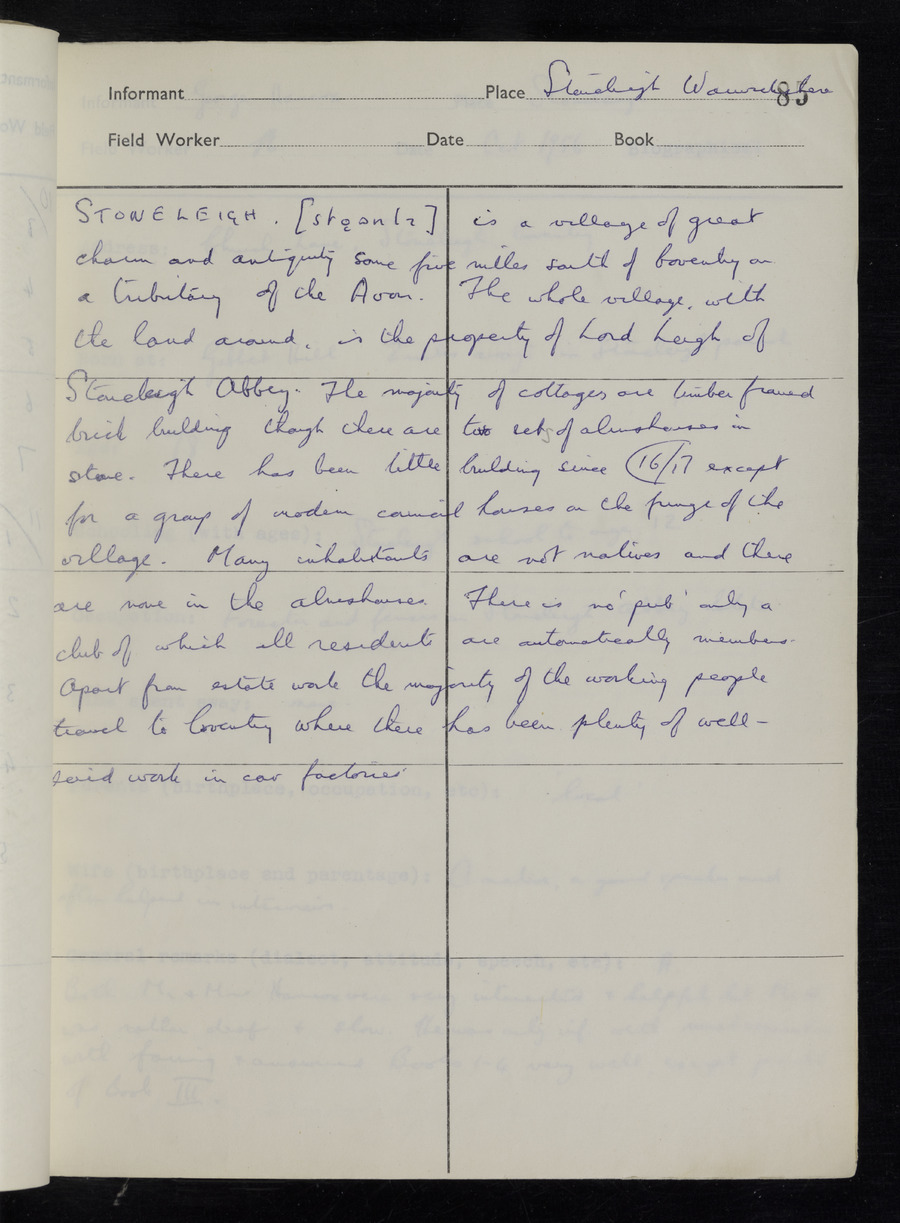 Informant Place Stoneleigh Warwickshire 85
Field Worker Date Book
STONELEIGH. is a village of great
charm and antiquity some five miles south of Coventry on
a tributary of the Avon. The whole village, with
the land around, is the property of Lord Leigh of
Stoneleigh Abbey. The majority of cottages are timber framed
brick building though there are two sets of almshouses in
stone. There has been little building since 16/17 except
for a group of modern council houses on the fringe of the
village. Many inhabitants are not natives and there
are none in the almshouses. There is no 'pub' only a
club of which all residents are automatically members.
Apart from estate work the majority of the working people
travel to Coventry where there has been plenty of well-
paid work in car factories